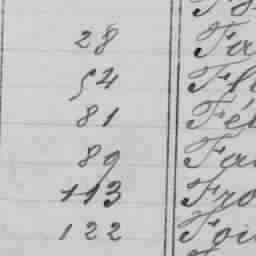 28 Fa
54 Fl
81 Fé
89 Fa
113 Fro
122 Fou